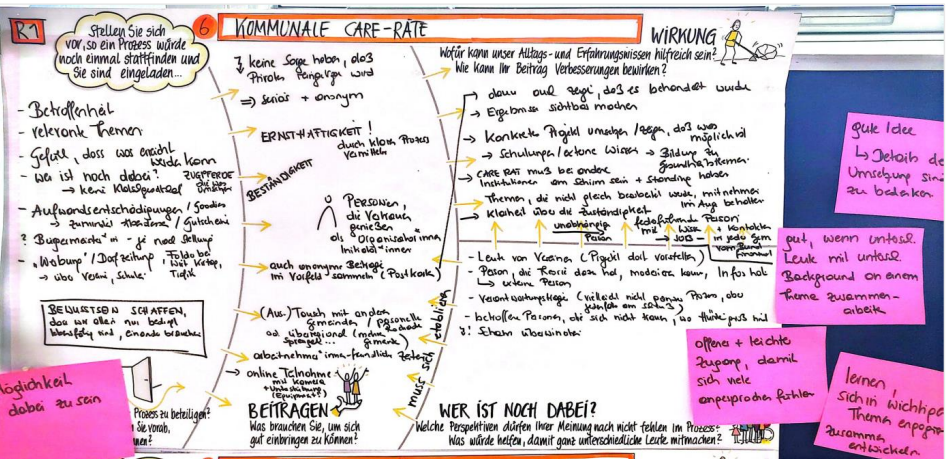 R1
Stellen Sie sich
vor, so ein Prozess würde
noch einmal stattfinden und
Sie sind eingeladen...
6
KOMMUNALE CARE-RÄTE
- Betroffenheit
- relevante Themen
- Gefühl, dass was erreicht
werden kann
- wer ist noch dabei?
ZUGPFERDE
die was
→ kein
- Aufwandsentschädigungen / Goodies
→ / Gutschein
? Bürgermeister*in - je nach Stellung
- "Werbung" / Dorfzeitung
→ über Verein, Schule
BEWUSTSEIN SCHAFFEN,
dass wir alle nur bedingt
sind, einander brauchen
Prozess zu beteiligen?
Sie vorab,
nen?
keine Sorge haben, daß
Privates wird
⇒ seriös + anonym
ERNSTHAFTIGKEIT!
durch klaren Prozess
vermitteln
BESTÄNDIGKEIT
PERSONEN,
die Vertrauen
genießen
als Organisator*innen
Initiator*innen
auch anonyme Beiträge
im Vorfeld sammeln (Postkarte)
(Aus-)Tausch mit anderen
gemeinden / personelle
od. überregional (mehrere
Sprengel...
arbeitnehmer*innen-freundliche Zeiten
→ online Teilnahme
mit Kamera
+ Unterstützung
(Equipment?)
BEITRAGEN
Was brauchen Sie, um sich
gut einbringen zu können?
muss sich etablieren
WIRKUNG
Wofür kann unser Alltags- und Erfahrungswissen hilfreich sein?
Wie kann Ihr Beitrag Verbesserungen bewirken?
→ dann auch zeigen, daß es behandelt wurde
→ Ergebnisse sichtbar machen
→ Konkretes Projekt umsetzen / zeigen, daß was
möglich ist
→ Schulungen / externe Wissen → Bildung zu
→ CARE RAT muß bei anderen
Institutionen am Schirm sein + Standing haben
→ Themen, die nicht gleich bearbeitet werden, mitnehmen
im Aug behalten
→ Klarheit über die Zuständigkeit
unabhängige
Person
federführende Person
mit Wissen + Kontakten
→ JOB — in jeder Gem
vom Bund
finanziert
- Leute von Vereinen (Projekt dort vorstellen)
- Person, die Theorie dazu hat, moderieren kann, Infos hat
↳ externe Person
- Verantwortungsträger (vielleicht nicht ganzen Prozess, aber
- betroffene Personen, die sich nicht trauen, wo Hürde groß ist
? ! Scham überwinden
WER IST NOCH DABEI?
Welche Perspektiven dürfen Ihrer Meinung nach nicht fehlen im Prozess?
Was würde helfen, damit ganz unterschiedliche Leute mitmachen?
gute Idee
↳ Details der
Umsetzung sind
zu bedenken
gut, wenn untersch.
Leute mit untersch.
Background an einem
Thema zusammen-
arbeiten
offener + leichter
Zugang, damit
sich viele
angesprochen fühlen
lernen,
sich in wichtigen
Themen
zusammen
entwickeln
öglichkeit
dabei zu sein